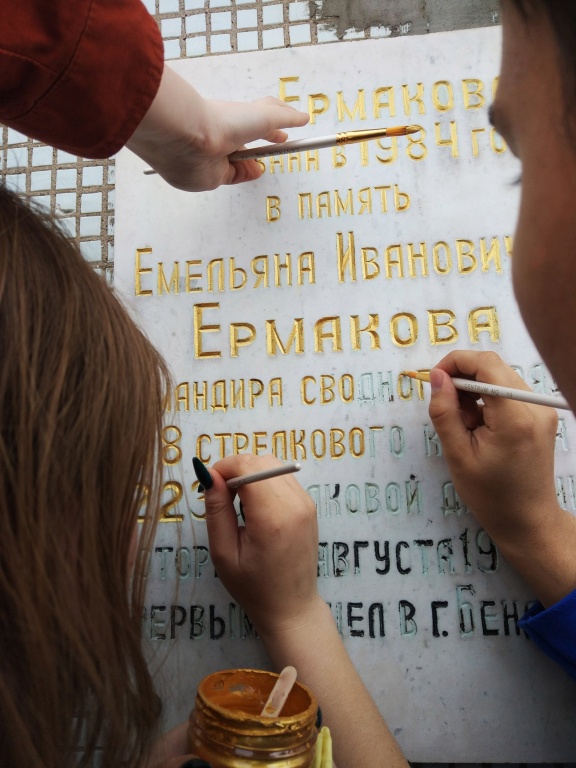 Ермаков
в 1984 го
в память
Емельяна Иванович
Ермакова
мандира сводного
8 стрелковог к
223 лковой д
тор августа 19
первым шел в г. Бен